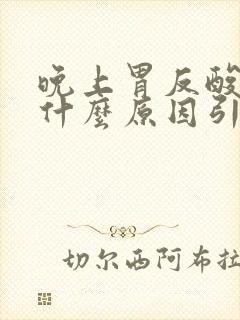 晚上胃反酸
什麼原因引
切尔西阿布拉